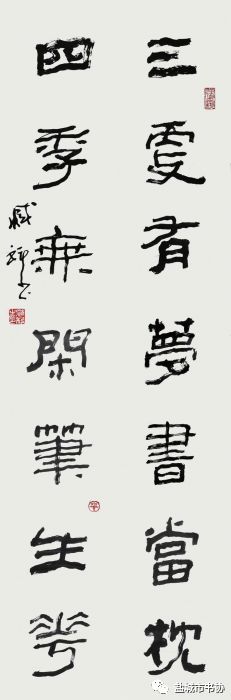 三更有夢書當枕
四季無閑筆生花
盐城市书协